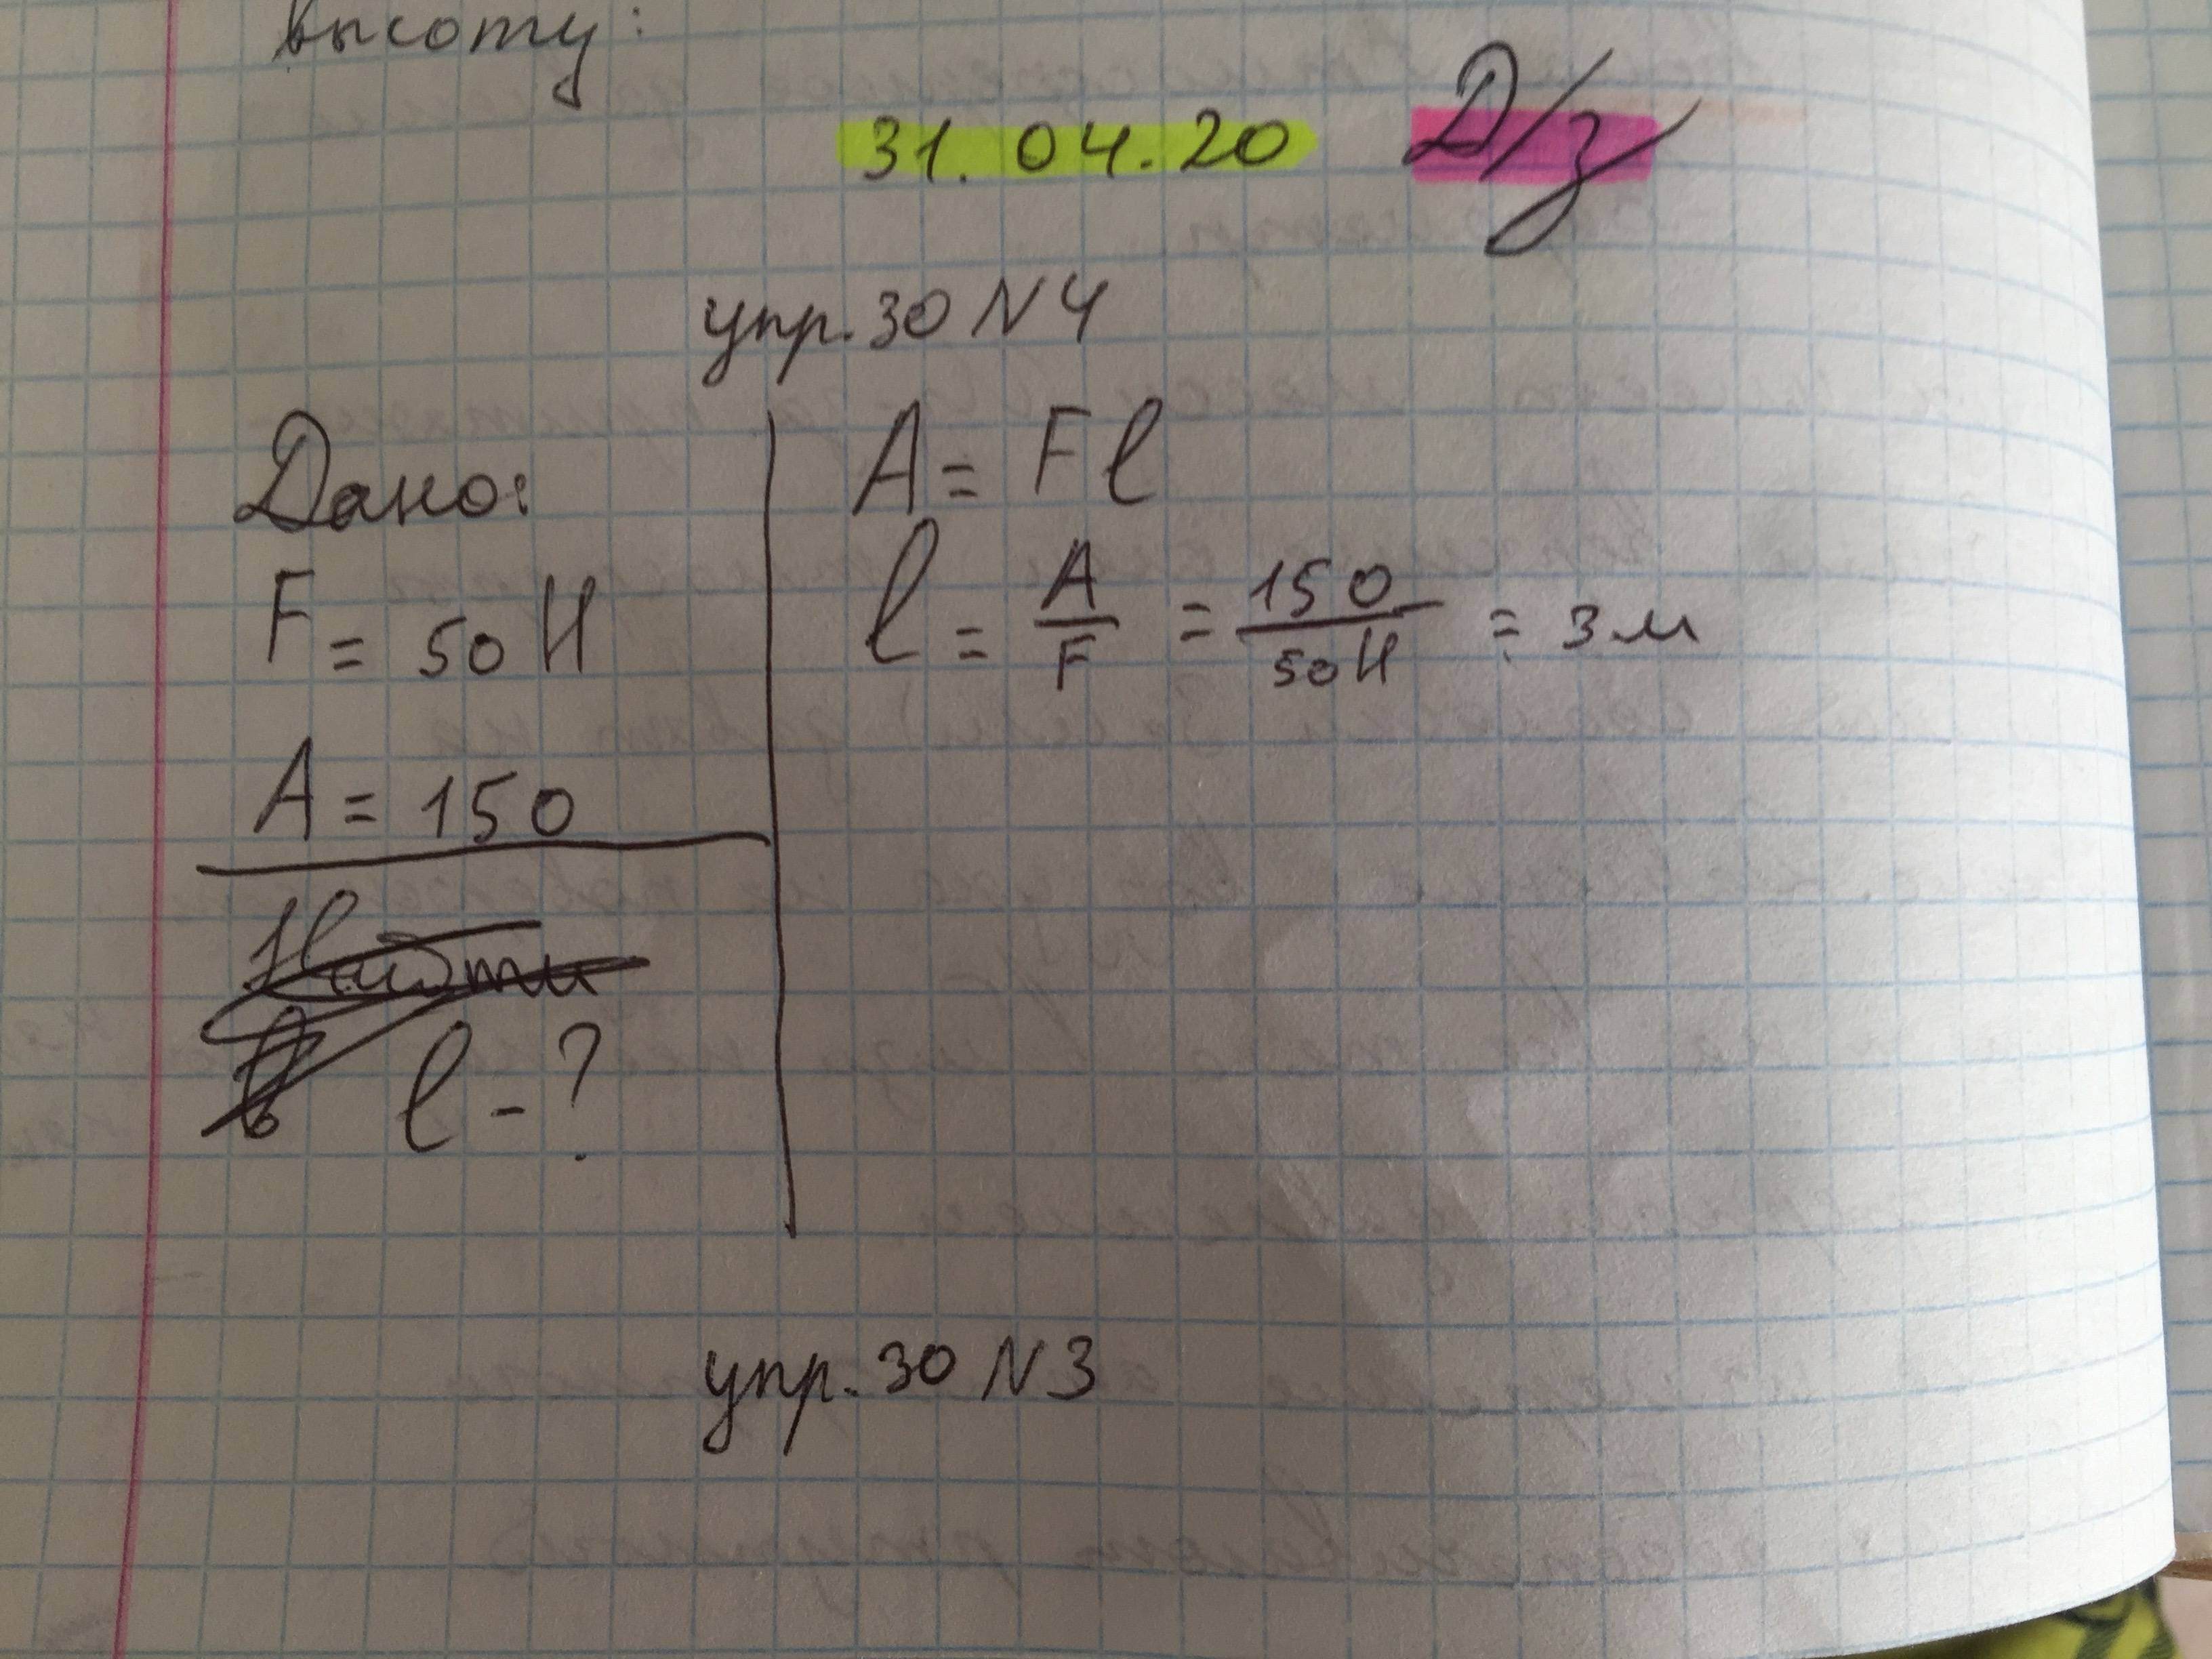 высоту:
31.04.20 Д/з
упр. 30 N 4
Дано:
F = 50 Н
A = 150
l - ?
A = Fl
l = A/F = 150/50Н = 3 м
упр. 30 N 3